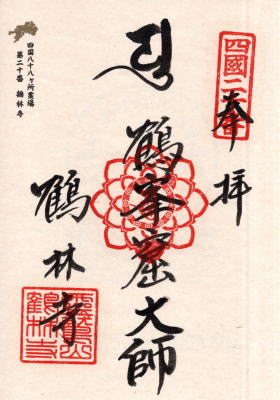 四國二
奉拝
鶴峯窟大師
鶴林寺
鶴林寺
四国八十八ヶ所霊場
第二十番 鶴林寺